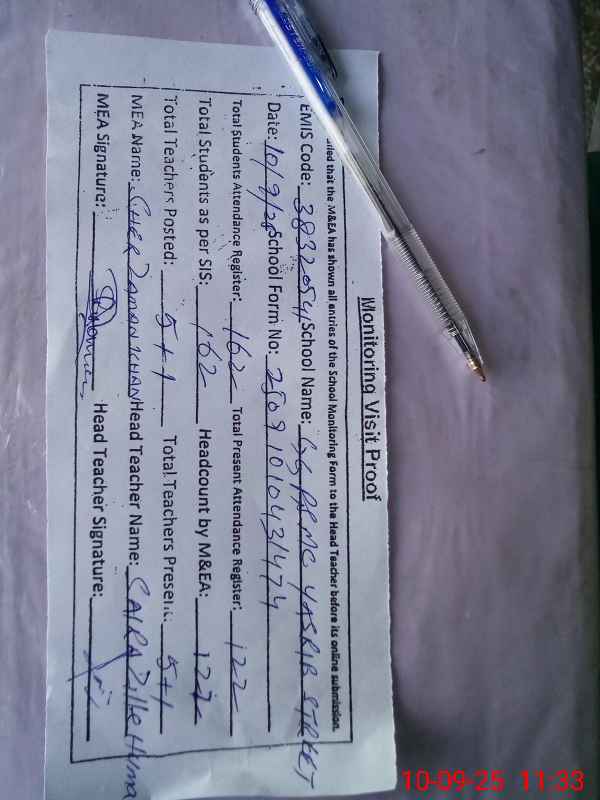 Monitoring Visit Proof
that the M&EA has shown all entries of the School Monitoring Form to the Head Teacher before its online submission.
EMIS Code: 38320541 School Name: GGPS MC YASRIB STREET
Date: 10/9/25 School Form No: 25091010431474
Total Students Attendance Register: 162 Total Present Attendance Register: 122
Total Students as per SIS: 162 Headcount by M&EA: 122
Total Teachers Posted: 5+1 Total Teachers Present: 5+1
MEA Name: SHER ZAMAN KHAN Head Teacher Name: SAIRA Zille Huma
MEA Signature: Head Teacher Signature:
10-09-25 11:33